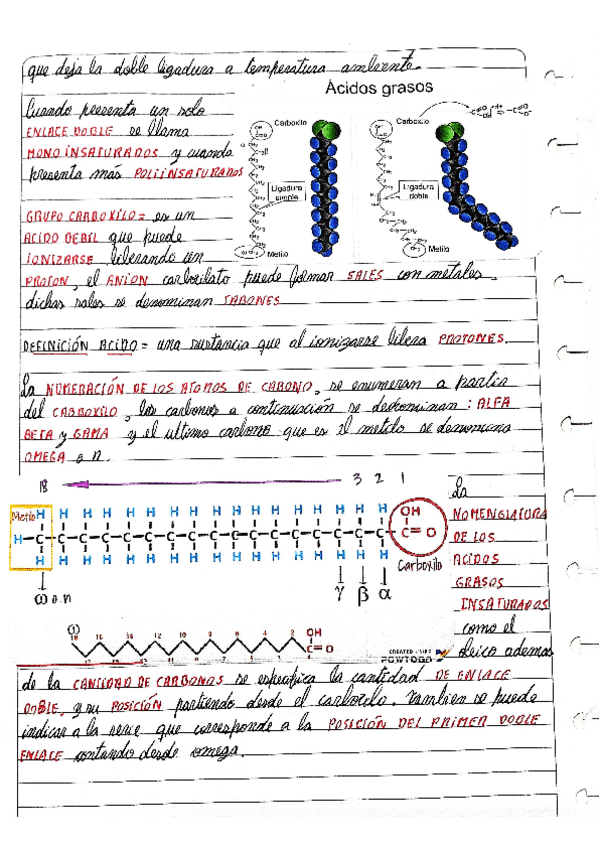 que deja la doble ligadura a temperatura ambiente.
Ácidos grasos
Cuando presenta un solo
ENLACE DOBLE se llama
MONOINSATURADOS y cuando
presenta más POLIINSATURADOS
Carboxilo
Ligadura
simple
Metilo
Carboxilo
Ligadura
doble
Metilo
GRUPO CARBOXILO = es un
ACIDO DEBIL que puede
IONIZARSE liberando un
PROTON, el ANION carboxilato puede formar SALES con metales.
dichas sales se denominan JABONES
DEFINICIÓN ACIDO = una sustancia que al ionizarse libera PROTONES.
La NUMERACIÓN DE LOS ATOMOS DE CARBONO, se enumeran a partir
del CARBOXILO, los carbonos a continuación se denominan : ALFA
BETA y GAMA y el ultimo carbono que es el metilo se denomina
OMEGA o n.
18 3 2 1
Metilo H H H H H H H H H H H H H H H H H OH
H-C-C-C-C-C-C-C-C-C-C-C-C-C-C-C-C-C-C=O
H H H H H H H H H H H H H H H H H
Carboxilo
ω o n γ β α
La
NOMENCLATURA
DE LOS
ACIDOS
GRASOS
INSATURADOS
como el
oleico ademas
18 16 14 12 10 8 6 4 2 OH
C=O
CREATED USING
POWTOON
de la CANTIDAD DE CARBONOS se especifica la cantidad DE ENLACE
DOBLE, y su POSICIÓN partiendo desde el carboxilo. Tambien se puede
indicar a la serie que corresponde a la POSICIÓN DEL PRIMER DOBLE
ENLACE contando desde omega.